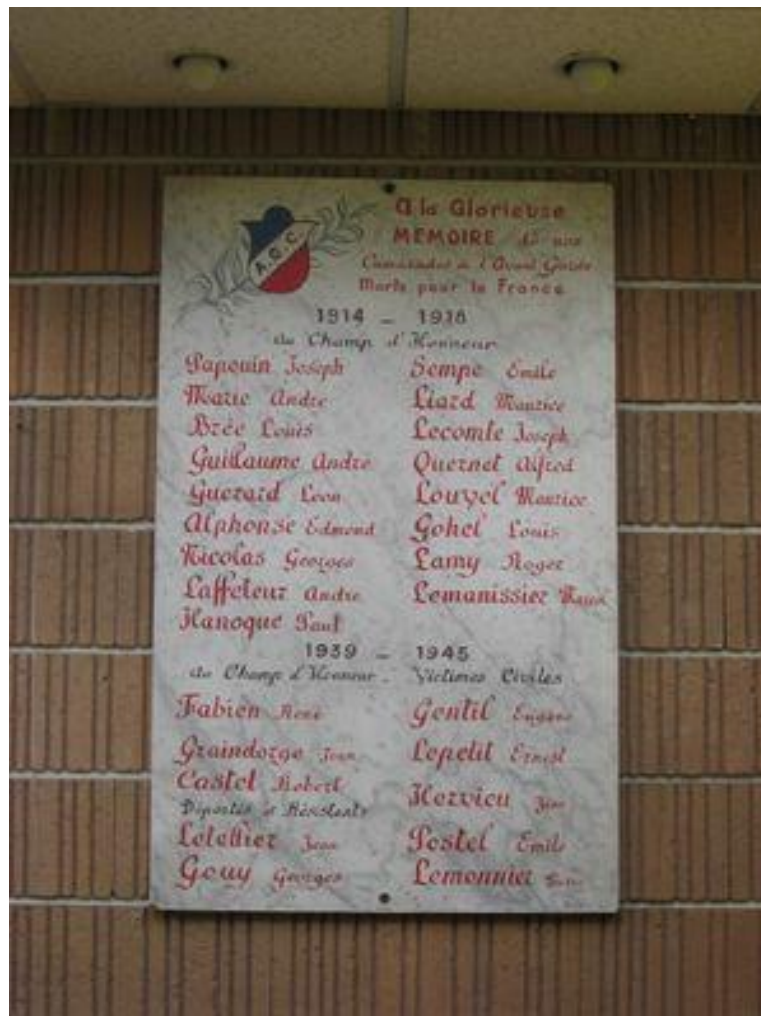 A.G.C.
A la Glorieuse
MEMOIRE de nos
Camarades de l'Avant Garde
Morts pour la France
1914 - 1918
au Champ d'Honneur
Papouin Joseph
Marie Andre
Brée Louis
Guillaume Andre
Guerard Leon
Alphonse Edmond
Nicolas Georges
Laffeteur Andre
Hanoque Paul
Sempe Emile
Liard Maurice
Lecomte Joseph
Quernet Alfred
Louvel Maurice
Gohel Louis
Lamy Roger
Lemanissier
1939 - 1945
au Champ d'Honneur
Fabien René
Graindorge Jean
Castel Robert
Déportés et Résistants
Letellier Jean
Gouy Georges
Victimes Civiles
Gentil Eugène
Lepetit Ernest
Hervieu
Postel Emile
Lemonnier